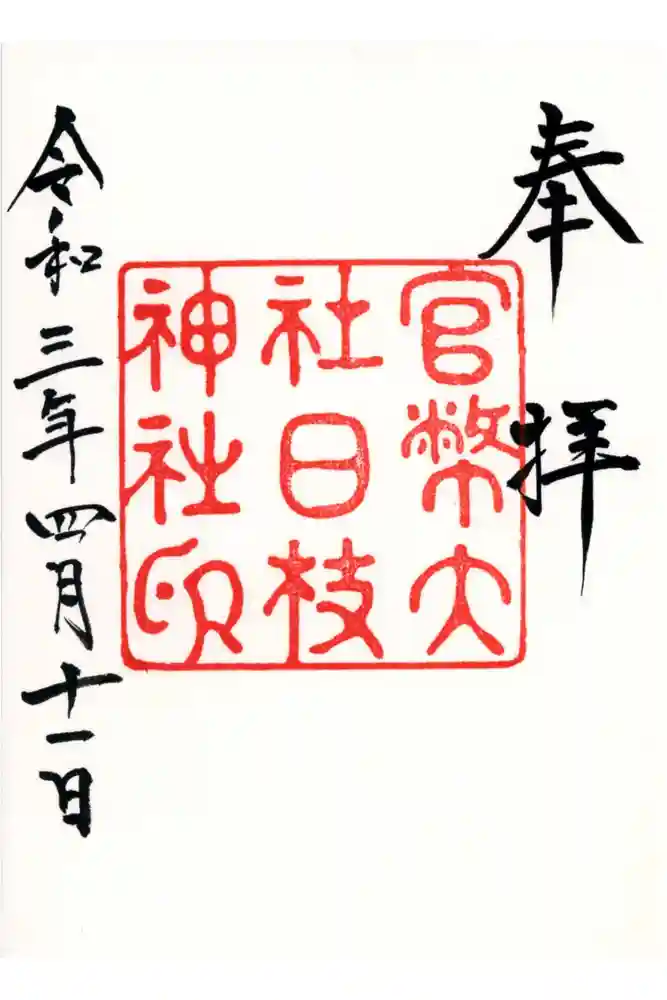 奉拝
官幣大
社日枝
神社印
令和三年四月十一日